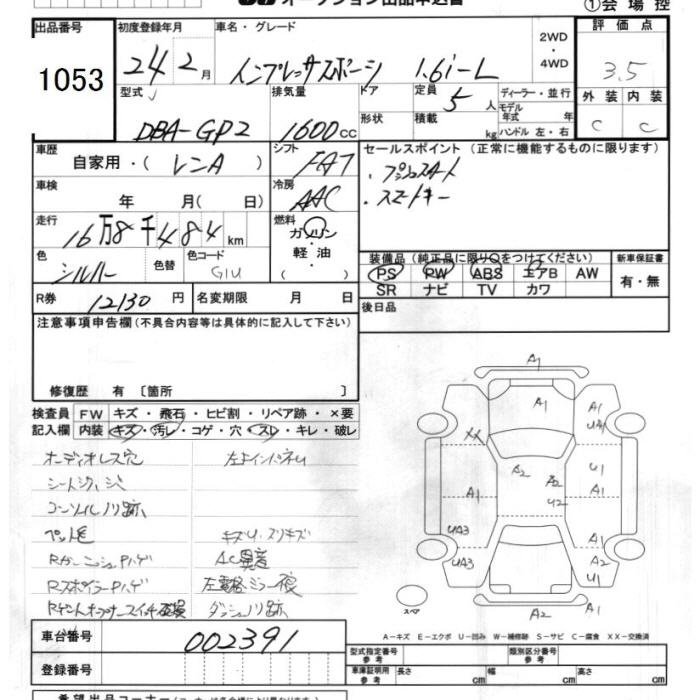 オークション出品申込書
①会場控
出品番号 初度登録年月 車名・グレード 2WD・4WD 評価点
1053 24年2月 インプレッサスポーツ 1.6i-L 3.5
型式 排気量 ドア 定員 5人 ディーラー・並行 外装 内装
DBA-GP2 1600cc 形状 積載 kg モデル年式 年 ハンドル 左・右 C C
車歴 自家用・(レンA) シフト FA7 セールスポイント (正常に機能するものに限ります)
・プッシュスタート
・スマートキー
車検 年 月(日) 冷房 AAC
走行 16万8千484km 燃料 ガソリン・軽油・
色 シルバー 色替 色コード G1U
装備品 (純正品に限り○をつけてください) 新車保証書
PS PW ABS エアB AW 有・無
SR ナビ TV カワ
R券 12130円 名変期限 月 日
後日品
注意事項申告欄(不具合内容等は具体的に記入して下さい)
修復歴 有 〔箇所 〕
検査員記入欄 FW キズ・飛石・ヒビ割・リペア跡・×要
内装 キズ・汚レ・コゲ・穴・スレ・キレ・破レ
オーディオレス穴 左上インパネム
シートシワ、シミ
コンソールノリ跡
ペット毛 キズU、スリキズ
Rガーニッシュハゲ AC異音
Rスポイラーハゲ 左電格ミラー
Rゲートオープナースイッチ ダッシュノリ跡
A1
A1 A1
UA1
XX
A2 A2 U1
A1 U2 A1
UA3 A1
UA3 A2
U1
A2
スペア
A-キズ E-エクボ U-凹み W-補修跡 S-サビ C-腐食 XX-交換済
車台番号 002391
登録番号
型式指定番号 参考 類別区分番号 参考
車庫証明用 参考 長さ cm 幅 cm 高さ cm
希望出品コーナー